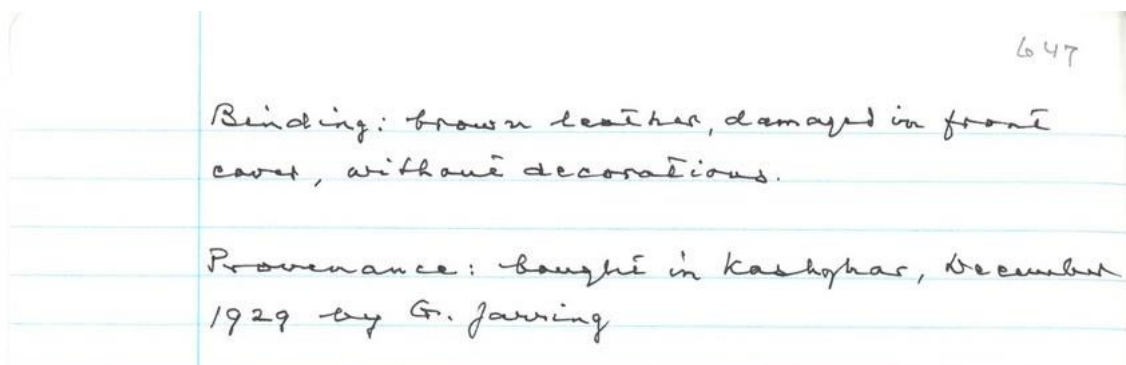 647
Binding: brown leather, damaged in front
cover, without decorations.
Provenance: bought in Kashghar, December
1929 by G. Jarring